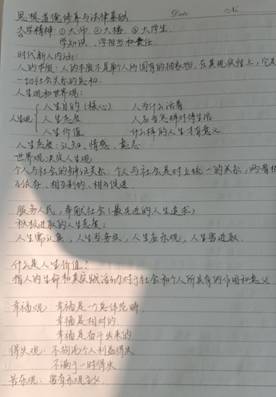 思想道德修养与法律基础
Date No
大学精神 ①大师 ②大楼 ③大学生
学知识、学担当和责任
时代新人内涵:
人的本质:人的本质不是单个人所固有的抽象物,在其现实性上,它是
一切社会关系的总和
人生观和世界观:
人生观
人生目的(核心) 人为什么活着
人生态度 人应当怎样对待生活
人生价值 什么样的人生才有意义
人生态度:认知、情感、意志
世界观决定人生观
个人与社会的辩证关系:个人与社会是对立统一的关系,两者相
互依存、相互制约、相互促进
服务人民,奉献社会(最先进的人生追求)
积极进取的人生态度:
人生需认真,人生当务实,人生应乐观,人生需进取
什么是人生价值?
指人的生命和其实践活动对于社会和个人所具有的作用和意义
幸福观:幸福是一个总体范畴
幸福是相对的
幸福是奋斗出来的
得失观:不拘泥个人利益得失
不满于一时得失
苦乐观: